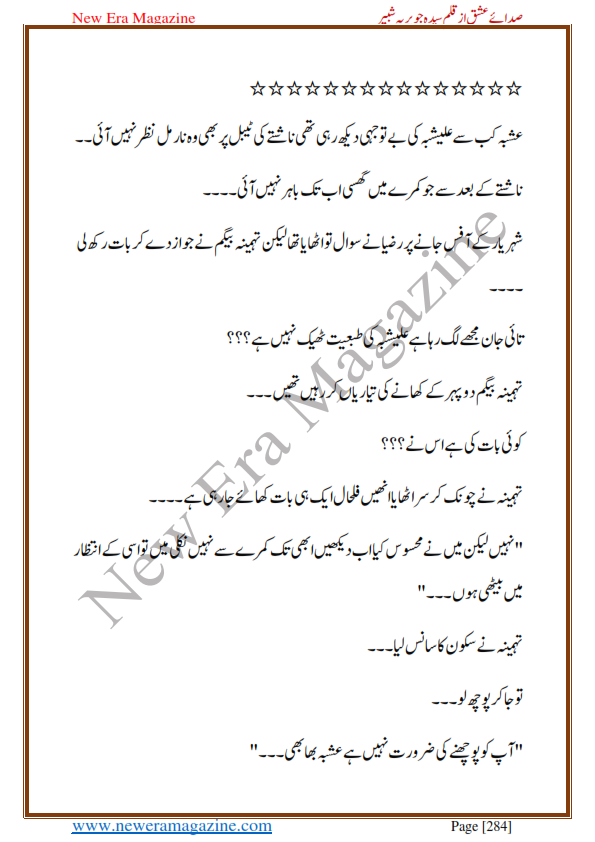 New Era Magazine صدائے عشق از قلم سیدہ جویریہ شبیر
☆☆☆☆☆☆☆☆☆☆☆☆☆☆☆
عشبہ کب سے علیشبہ کی بے توجہی دیکھ رہی تھی ناشتے کی ٹیبل پر بھی وہ نارمل نظر نہیں آئی۔۔
ناشتے کے بعد سے جو کمرے میں گھسی اب تک باہر نہیں آئی۔۔۔۔
شہریار کے آفس جانے پر رضیا نے سوال تو اٹھایا تھا لیکن تہمینہ بیگم نے جواز دے کر بات رکھ لی
۔۔۔۔
تائی جان مجھے لگ رہا ہے علیشبہ کی طبعیت ٹھیک نہیں ہے؟؟؟
تہمینہ بیگم دوپہر کے کھانے کی تیاریاں کر رہیں تھیں۔۔۔
کوئی بات کی ہے اس نے؟؟؟
تہمینہ نے چونک کر سر اٹھایا انھیں فلحال ایک ہی بات کھائے جا رہی ہے۔۔۔۔
"نہیں لیکن میں نے محسوس کیا اب دیکھیں ابھی تک کمرے سے نہیں نکلی میں تو اسی کے انتظار
میں بیٹھی ہوں۔۔۔"
تہمینہ نے سکون کا سانس لیا۔۔۔
تو جا کر پوچھ لو۔۔۔
"آپ کو پوچھنے کی ضرورت نہیں ہے عشبہ بھابھی۔۔۔"
New Era Magazine
www.neweramagazine.com Page [284]